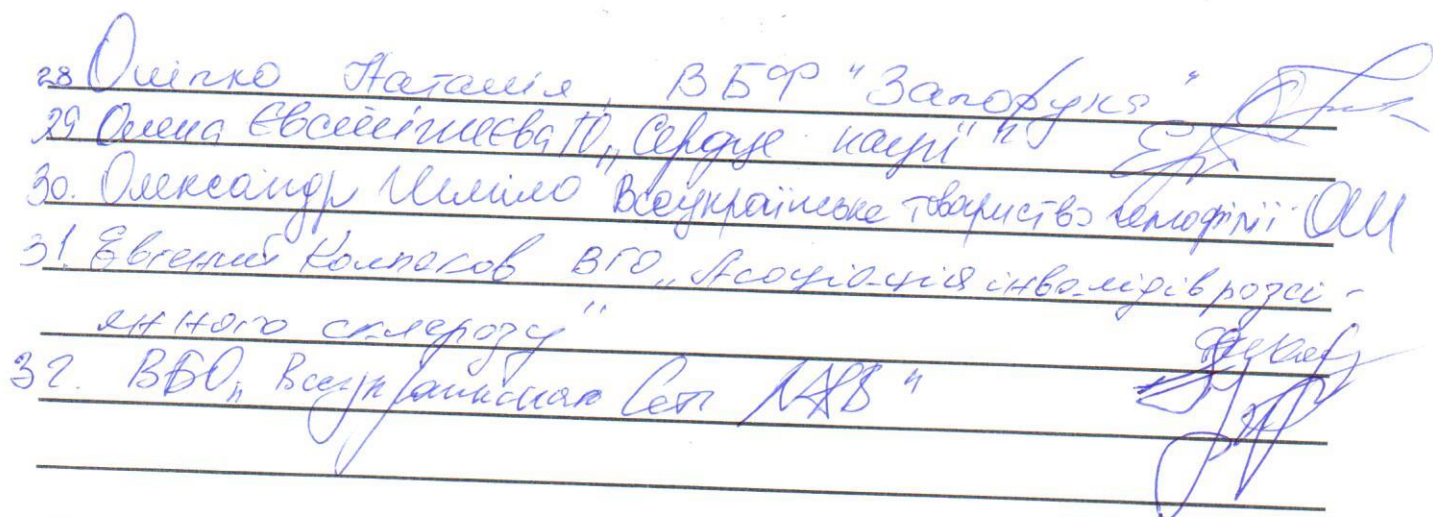 28 Оніпко Наталія, ВБФ "Запорука"
29 Олена Євсейгнєєва ГО „Сердце нації"
30. Олександр Шміло Всеукраїнське товариство гемофілії ОШ
31. Евгений Колпаков ВГО „Асоціація інвалідів розсі-
янного склерозу"
32. ВБО „Всеукраинская Сеть ЛЖВ"